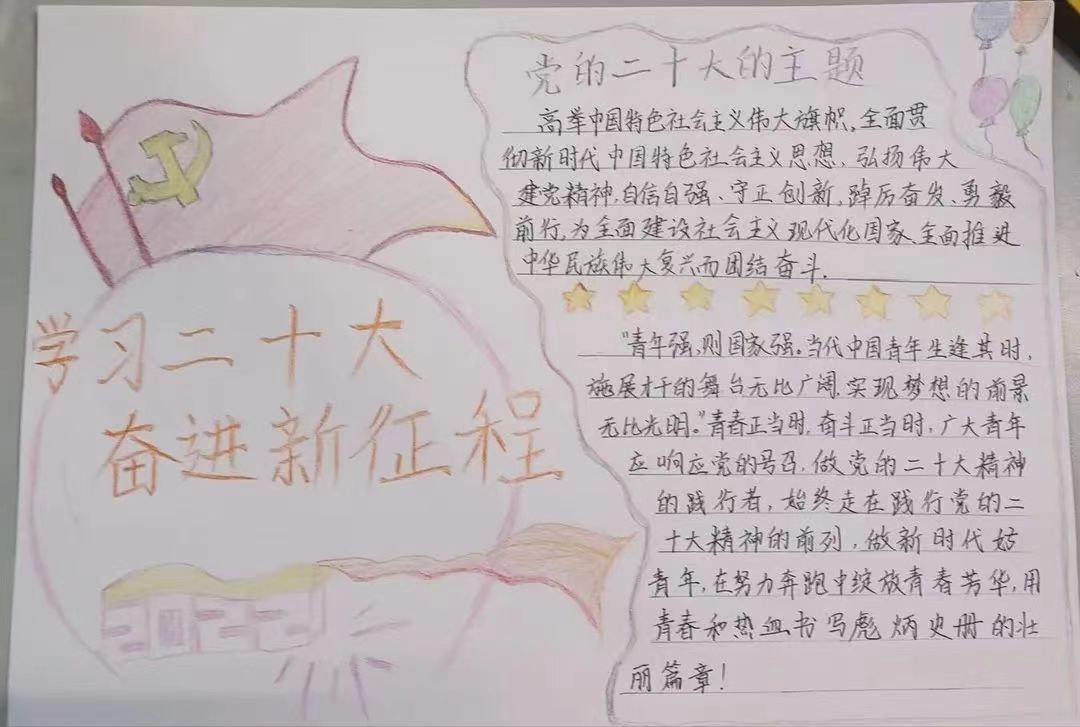 学习二十大
奋进新征程
党的二十大的主题
高举中国特色社会主义伟大旗帜,全面贯
彻新时代中国特色社会主义思想,弘扬伟大
建党精神,自信自强、守正创新,踔厉奋发、勇毅
前行,为全面建设社会主义现代化国家、全面推进
中华民族伟大复兴而团结奋斗.
“青年强,则国家强。当代中国青年生逢其时,
施展才干的舞台无比广阔,实现梦想的前景
无比光明。”青春正当时,奋斗正当时,广大青年
应响应党的号召,做党的二十大精神
的践行者,始终走在践行党的二
十大精神的前列,做新时代好
青年,在努力奔跑中绽放青春芳华,用
青春和热血书写彪炳史册的壮
丽篇章!